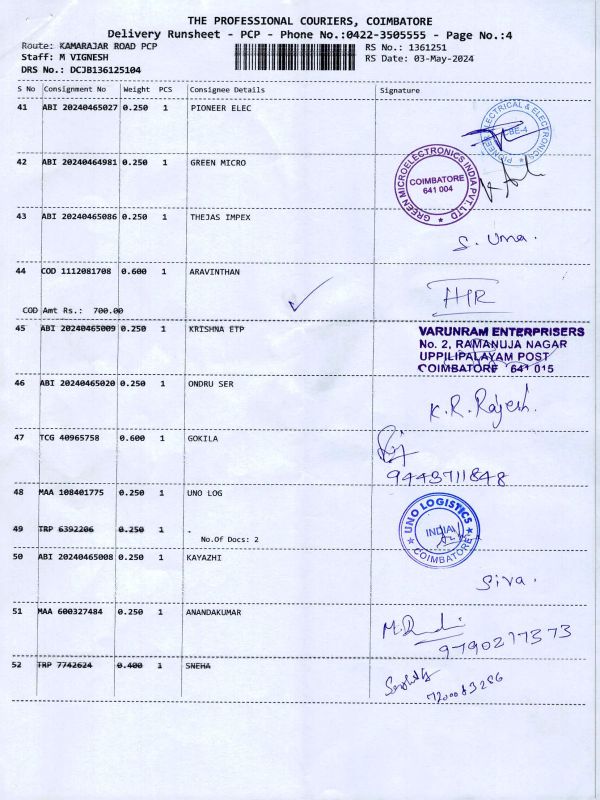 THE PROFESSIONAL COURIERS, COIMBATORE
Delivery Runsheet - PCP - Phone No.:0422-3505555 - Page No.:4
Route: KAMARAJAR ROAD PCP RS No.: 1361251
Staff: M VIGNESH RS Date: 03-May-2024
DRS No.: DCJB136125104
S No Consignment No Weight PCS Consignee Details Signature
41 ABI 20240465027 0.250 1 PIONEER ELEC
PIONEER ELECTRICAL & ELECTRONICS
CBE-4
42 ABI 20240464981 0.250 1 GREEN MICRO
GREEN MICROELECTRONICS INDIA PVT. LTD
COIMBATORE
641 004
43 ABI 20240465086 0.250 1 THEJAS IMPEX
S. Uma.
44 COD 1112081708 0.600 1 ARAVINTHAN
COD Amt Rs.: 700.00
45 ABI 20240465009 0.250 1 KRISHNA ETP
VARUNRAM ENTERPRISERS
No. 2, RAMANUJA NAGAR
UPPILIPALAYAM POST
COIMBATORE 641 015
46 ABI 20240465020 0.250 1 ONDRU SER
K.R. Rajesh.
47 TCG 40965758 0.600 1 GOKILA
9443711848
48 MAA 108401775 0.250 1 UNO LOG
UNO LOGISTICS
INDIA
COIMBATORE
49 TRP 6392206 0.250 1 .
No.Of Docs: 2
50 ABI 20240465008 0.250 1 KAYAZHI
Siva.
51 MAA 600327484 0.250 1 ANANDAKUMAR
9790217373
52 TRP 7742624 0.400 1 SNEHA